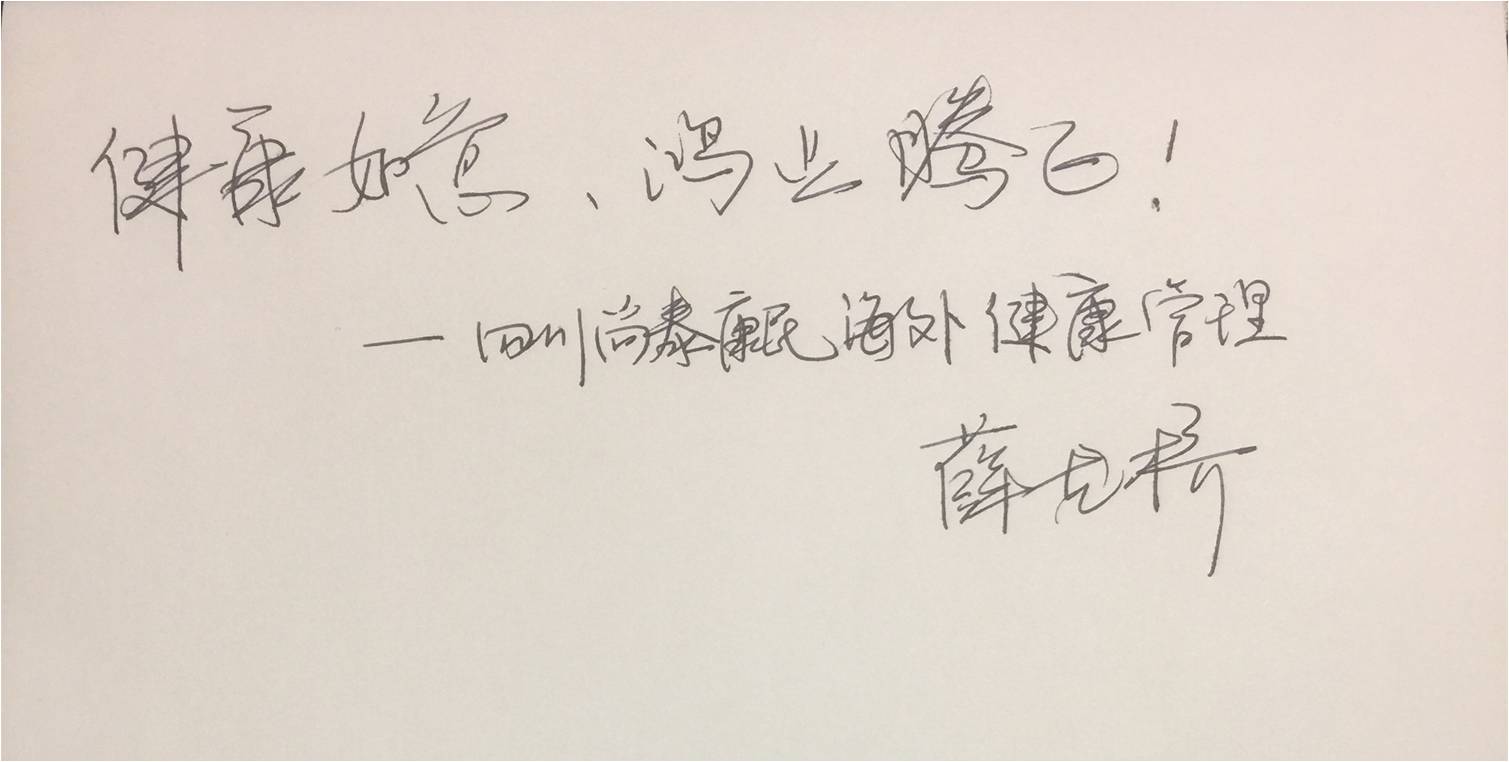 健康如意、鸿业腾飞！
—四川尚泰康民海外健康管理
薛